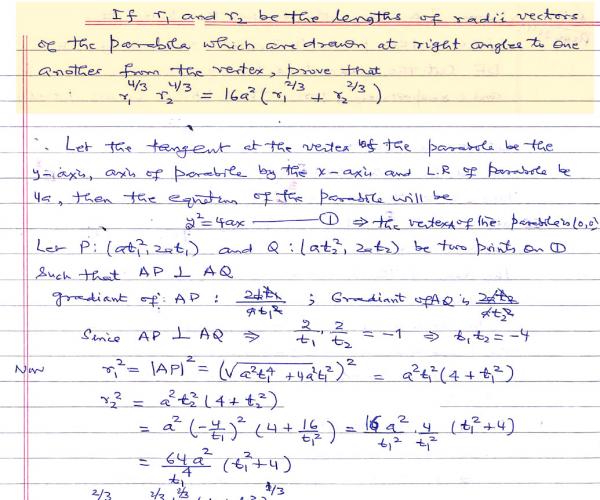 If r₁ and r₂ be the lengths of radii vectors
of the parabola which are drawn at right angles to one
another from the vertex, prove that
r₁^4/3 r₂^4/3 = 16a²(r₁^2/3 + r₂^2/3)
∴ Let the tangent at the vertex of the parabola be the
y-axis, axis of parabola by the x-axis and L.R of parabola be
4a, then the equation of the parabola will be
y²=4ax —— ① ⇒ the vertex of the parabola is (0,0)
Let P: (at₁², 2at₁) and Q: (at₂², 2at₂) be two points on ①
Such that AP ⊥ AQ
gradiant of: AP : 2at₁/at₁² ; Gradiant of AQ is 2at₂/at₂²
Since AP ⊥ AQ ⇒ 2/t₁ · 2/t₂ = -1 ⇒ t₁t₂ = -4
Now r₁² = |AP|² = (√a²t₁⁴ + 4a²t₁²)² = a²t₁²(4+t₁²)
r₂² = a²t₂²(4+t₂²)
= a²(-4/t₁)²(4+16/t₁²) = 16a²/t₁² · 4/t₁² (t₁²+4)
= 64a²/t₁⁴ (t₁²+4)